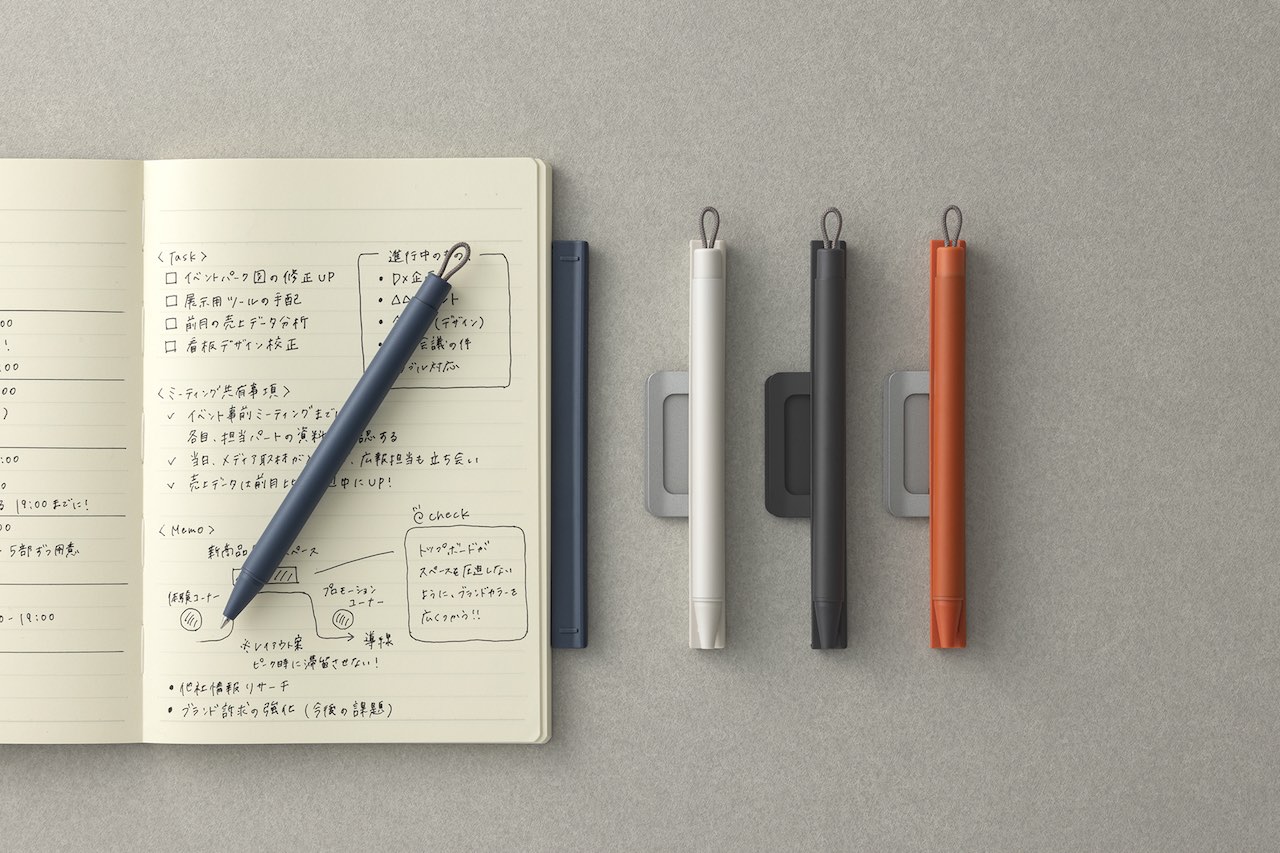 00
!
:00
00
)
:00
0
る 19:00までに!
00
5部ずつ用意
0-19:00
<Task>
□ イベントパーク図の修正UP
□ 展示用ツールの手配
□ 前月の売上データ分析
□ 看板デザイン校正
進行中のもの
• D×企
• △△ ント
• (デザイン)
会議の件
ブル対応
<ミーティング共有事項>
✓ イベント事前ミーティングまでに
各自、担当パートの資料 認する
✓ 当日、メディア取材が 、広報担当も立ち会い
✓ 売上データは前月比 中にUP!
<Memo>
新商品 スペース
体験コーナー
プロモーション
コーナー
導線
※レイアウト案
ピーク時に滞留させない!
check
トップボードが
スペースを圧迫しない
ように、ブランドカラーを
広くつかう!!
• 他社情報リサーチ
• ブランド訴求の強化(今後の課題)